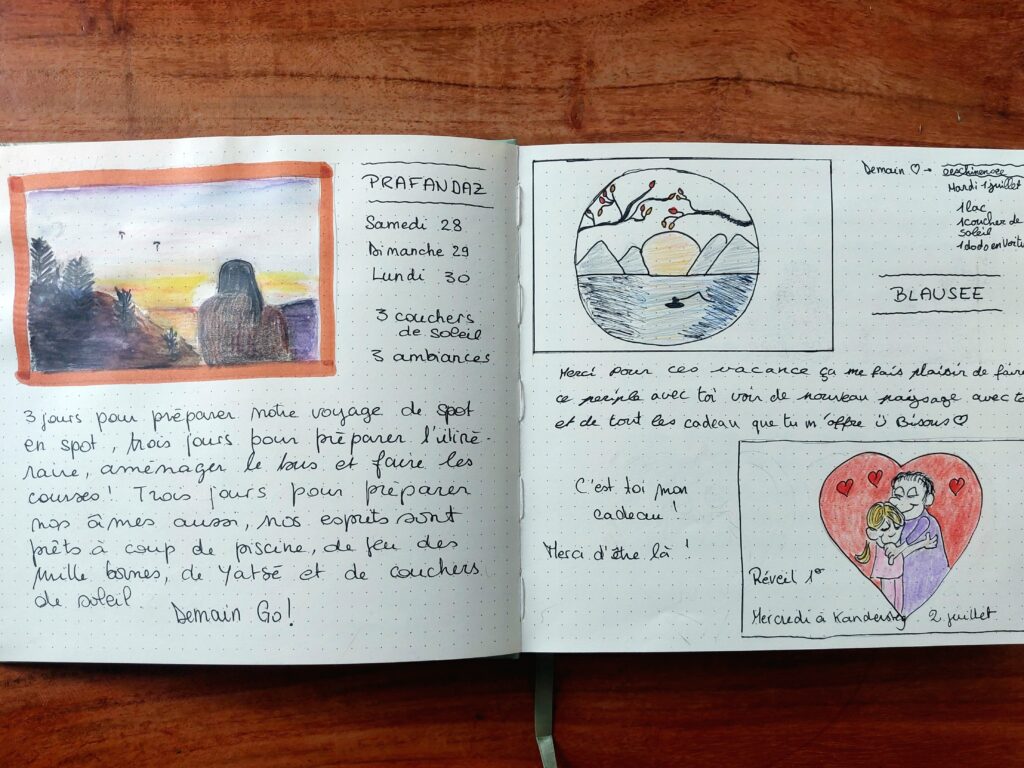 PRAFANDAZ
Samedi 28
Dimanche 29
Lundi 30
3 couchers
de soleil
3 ambiances
3 jours pour préparer notre voyage de spot
en spot, trois jours pour préparer l'itiné-
raire, aménager le bus et faire les
courses! Trois jours pour préparer
nos âmes aussi, nos esprits sont
prêts à coup de piscine, de feu des
mille bornes, de Yatsé et de couchers
de soleil.
Demain Go!
Demain ♡ → oeschinensee
Mardi 1 juillet
1 lac
1 coucher de
soleil
1 dodo en voitu
BLAUSEE
Merci pour ces vacance ça me fais plaisir de faire
ce periple avec toi voir de nouveau paysage avec to
et de tout les cadeau que tu m'offre ü Bisous ♡
C'est toi mon
cadeau!
Merci d'être là !
Réveil 1°
Mercredi à Kandersteg 2 juillet